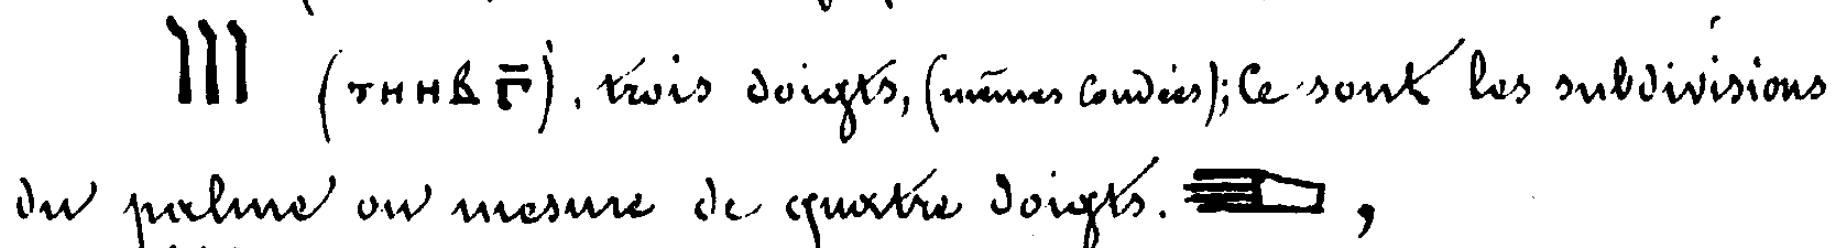 𓂭𓂭𓂭 (ⲧⲏⲏⲃ ⲅ̅), trois doigts, (mêmes Coudées); Ce sont les subdivisions
du palme ou mesure de quatre doigts. 𓂩,